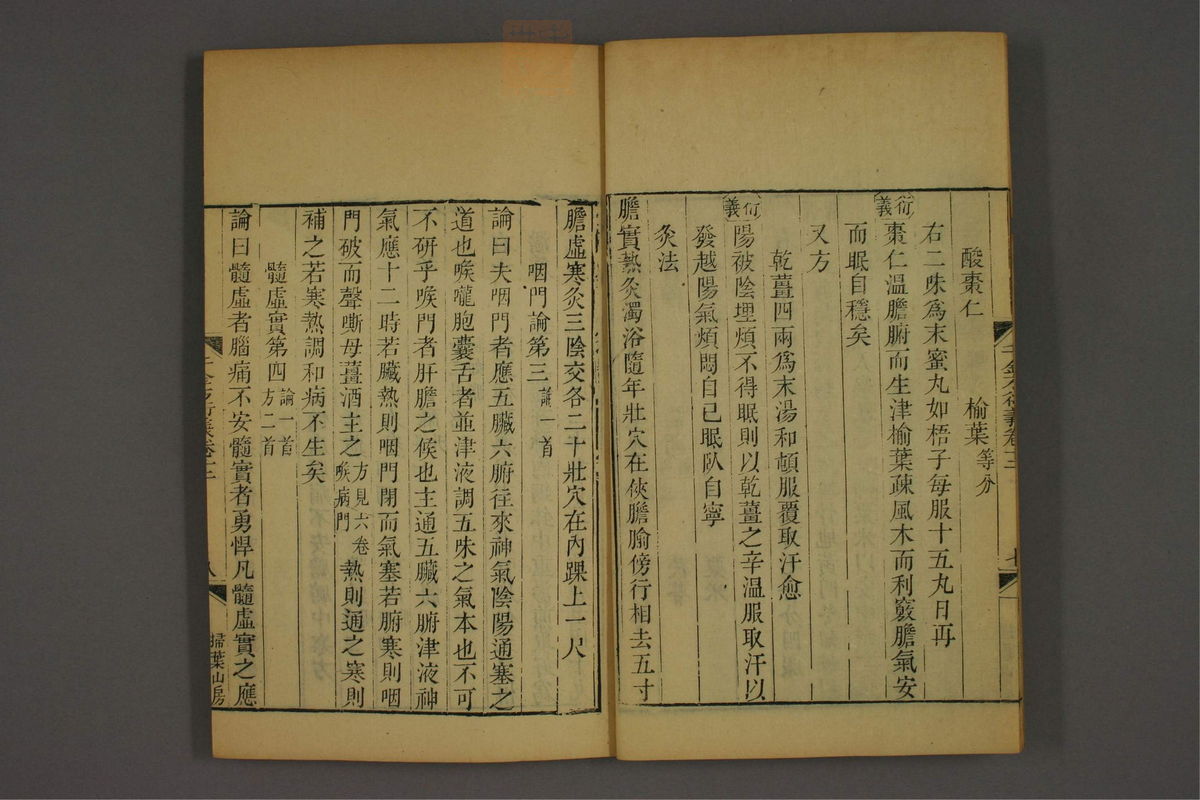 酸棗仁 榆葉等分
右二味爲末蜜丸如梧子每服十五丸日再
衍義棗仁溫膽腑而生津榆葉疎風木而利竅膽氣安
而眠自穩矣
又方
乾薑四兩爲末湯和頓服覆取汗愈
衍義陽被陰埋煩不得眠則以乾薑之辛溫服取汗以
發越陽氣煩悶自已眠臥自寧
灸法
膽實熱灸濁浴隨年壯穴在俠膽腧傍行相去五寸
七
膽虛寒灸三陰交各二十壯穴在內踝上一尺
咽門論第三論一首
論曰夫咽門者應五臟六腑往來神氣陰陽通塞之
道也喉嚨胞囊舌者並津液調五味之氣本也不可
不研乎喉門者肝膽之候也主通五臟六腑津液神
氣應十二時若臟熱則咽門閉而氣塞若腑寒則咽
門破而聲嘶母薑酒主之方見六卷喉病門熱則通之寒則
補之若寒熱調和病不生矣
髓虛實第四論一首方二首
論曰髓虛者腦痛不安髓實者勇悍凡髓虛實之應
千金方衍義卷十二 八 掃葉山房